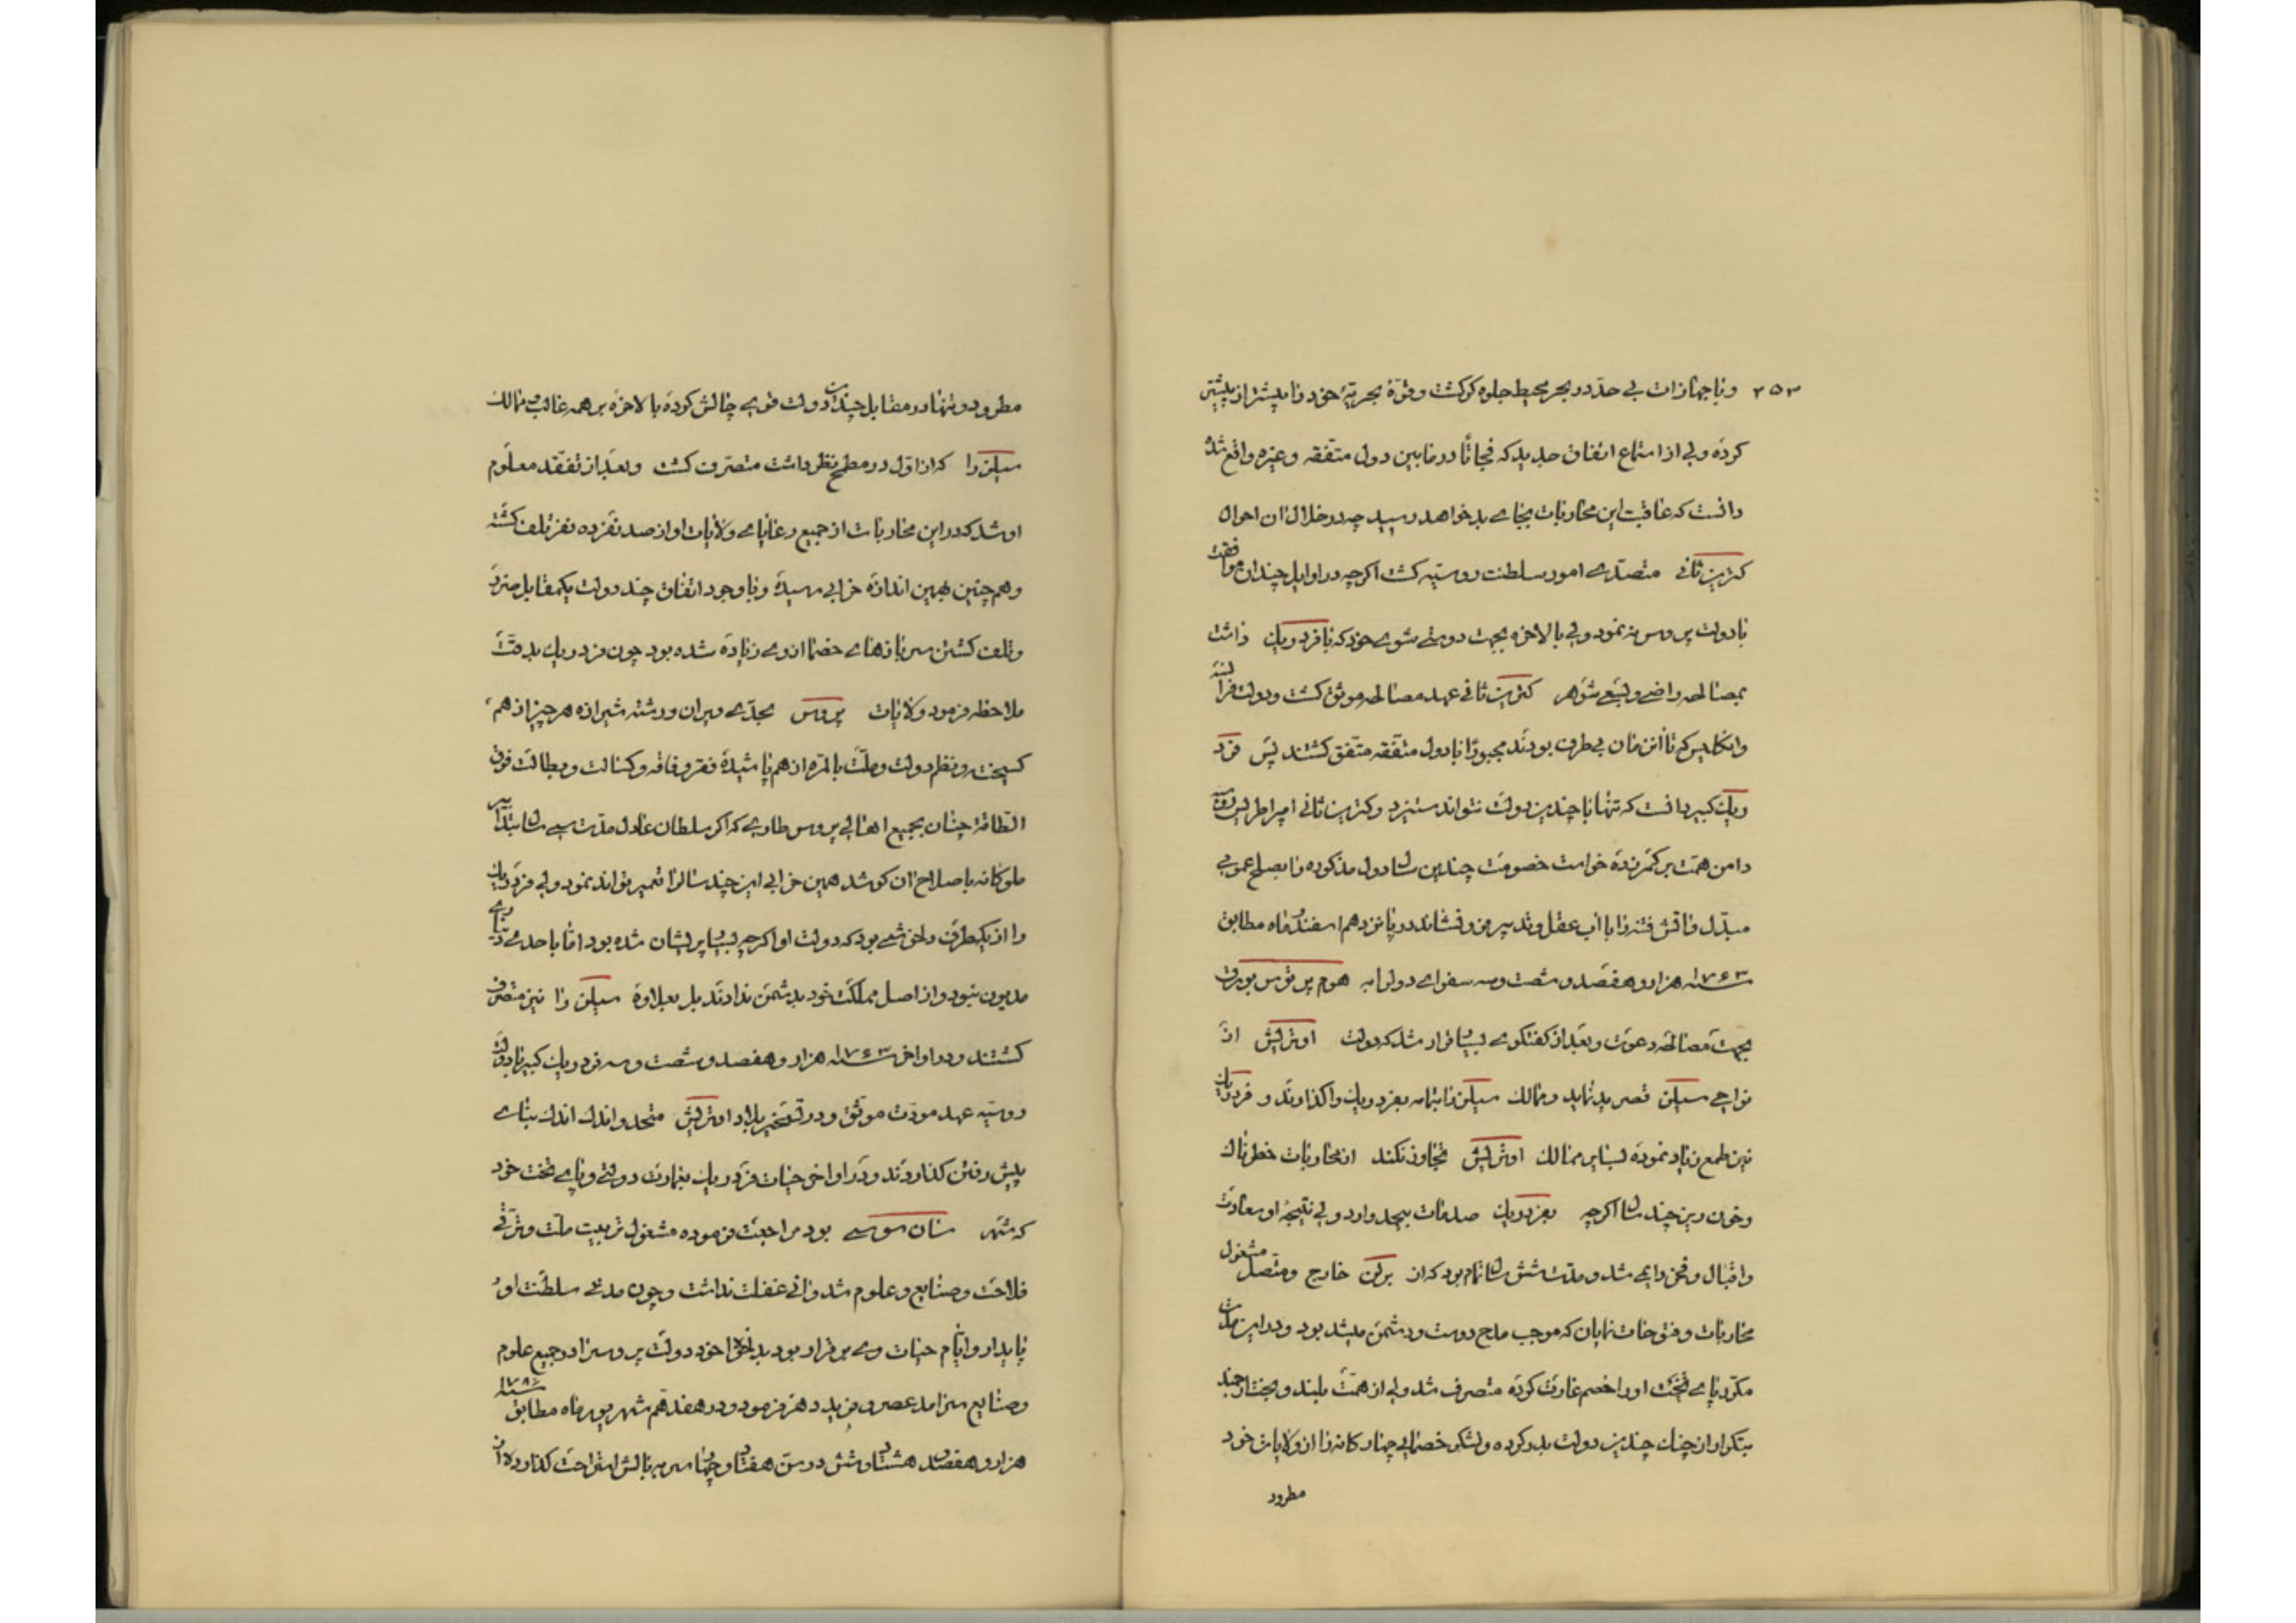 ۲۵۳ وبا جهازات بی حدّ در بحر محیط جلوه کر کشت وقوّهٔ بحریّهٔ خود را بیشتر از پیشتر
کرده ولی از استماع اتفاق جدید که فجأتاً در مابین دول متّفقه وغیره واقع شد
دانست که عاقبت این محاربات بجاے بد خواهد رسید چه در خلال ان احوال
کترین ثانی متصدّے امور سلطنت روسیّه کشت اکرچه در اوایل چندان موافقت
با دولت پروس نه نمود ولی بالاخره بجهت دوستے شوے خود که با فردریک داشت
بمصالحه راضے وبسَعے شوهر کترین ثانی عهد مصالحه موثق کشت ودولت فرانسه
وانکلیس که تا ان زمان بی طرف بودند مجبوراً با دول متفقه متّفق کشتند پس فرد
ریک کبیر دانست که تنها با چندین دولت نتواند ستیزد وکترین ثانی امپراطریس روسیه
دامن همّت بر کمر زده خواست خصومت چندین سال دول مذکوره را بصلح عمومی
مبدّل واتش فتنه را با اب عقل وتدبیر فرو نشاند در پانزدهم اسفندار ماه مطابق
سنه ۱۷۶۳ هزار وهفصد وشصت وسه سفراے دول را به هوم پرتوس بورق
بجهت مصالحه دعوت وبعد از کفتکوے بسیار قرار شد که دولت اوتریش از
نواحے سیلن قصر ید نماید وممالک سیلن را بتمامه بفردریک واکذارند و فردریک
نیز طمع زیاد نموده بسایر ممالک اوتریش تجاوز نکند از محاربات خطرناک
وخون ریز چند سال اکرچه بفردریک صدمات بیحد وارد ولی نتیجهٔ او سعادت
واقبال وفخر دایمے شد ومدت شش سال تمام بود که از برلن خارج ومتصل مشغول
محاربات وفتوحات نمایان که موجب مدح دوست ودشمن میشد بود ودر این مدّت
مکرّر پاے تخت اورا خصم غارت کرده متصرف شد ولی از همّت بلند وبخت ارجمند
بتکرار از چنک چندین دولت بدر کرده ولشکر خصمای چهار کانه را از ولایات خود
مطرود
مطرود وتنها در مقابل چندین دولت قوے چالش کرده بالاخره بر همه غالب وممالک
سیلن را که از اوّل در مطمح نظر داشت متصرف کشت وبعد از تفقد معلوم
او شد که در این محاربات از جمیع رعایاے ولایات او از صد نفر ده نفر تلف کشته
وهم چنین بهمین اندازه خرابی رسیده وبا وجود اتفاق چند دولت یکمقابل ضرر
وتلف کشتن سربازهاے خصما از وے زیاده شده بود چون فردریک بدقّت
ملاحظه فرمود ولایات پروس بحدّے ویران ورشته شیرازه هر چیز از هم
کسیخته ونظم دولت وملّت بالمرّه از هم پاشیده فقر وفاقه وکسالت وبطالت فوق
الطاقة چنان بجمیع اهالی پروس طاری که اکر سلطان عادل مدّت سی سال بتدابیر
ملوکانه باصلاح ان کوشد همین خرابی این چند ساله را تعمیر نتواند نمود ولی فردریک
را از یکطرف دلخوشی بود که دولت او اکرچه بسیار پریشان شده بود امّا باحدے دینارے
مدیون نبود واز اصل مملکت خود بدشمن ندادند بل بعلاوه سیلن را نیز متصرف
کشتند ودر اواخر سنه ۱۷۶۳ هزار وهفصد وشصت وسه فردریک کبیر با دولت
روسیّه عهد مودّت موثق ودر تسخیر بلاد اوتریش متحد واندک اندک بناے
پیش رفتن کذاردند ودر اواخر حیات فردریک بعمارت دولتے وپاے تخت خود
که شهر سان سوسے بود مراجعت فرموده مشغول تربیت ملّت وترقّے
فلاحت وصنایع وعلوم شد وانی غفلت نداشت وچون مدتے سلطنت او
پایدار وایّام حیات وے برقرار بود بدلخواه خود دولت پروس را در جمیع علوم
وصنایع سرامد عصر وفرید دهر فرمود ودر هفدهم شهریور ماه مطابق سنه ۱۷۸۶
هزار وهفصد هشتاد وشش در سن هفتاد وچهار سر به بالش استراحت کذارد ولا از